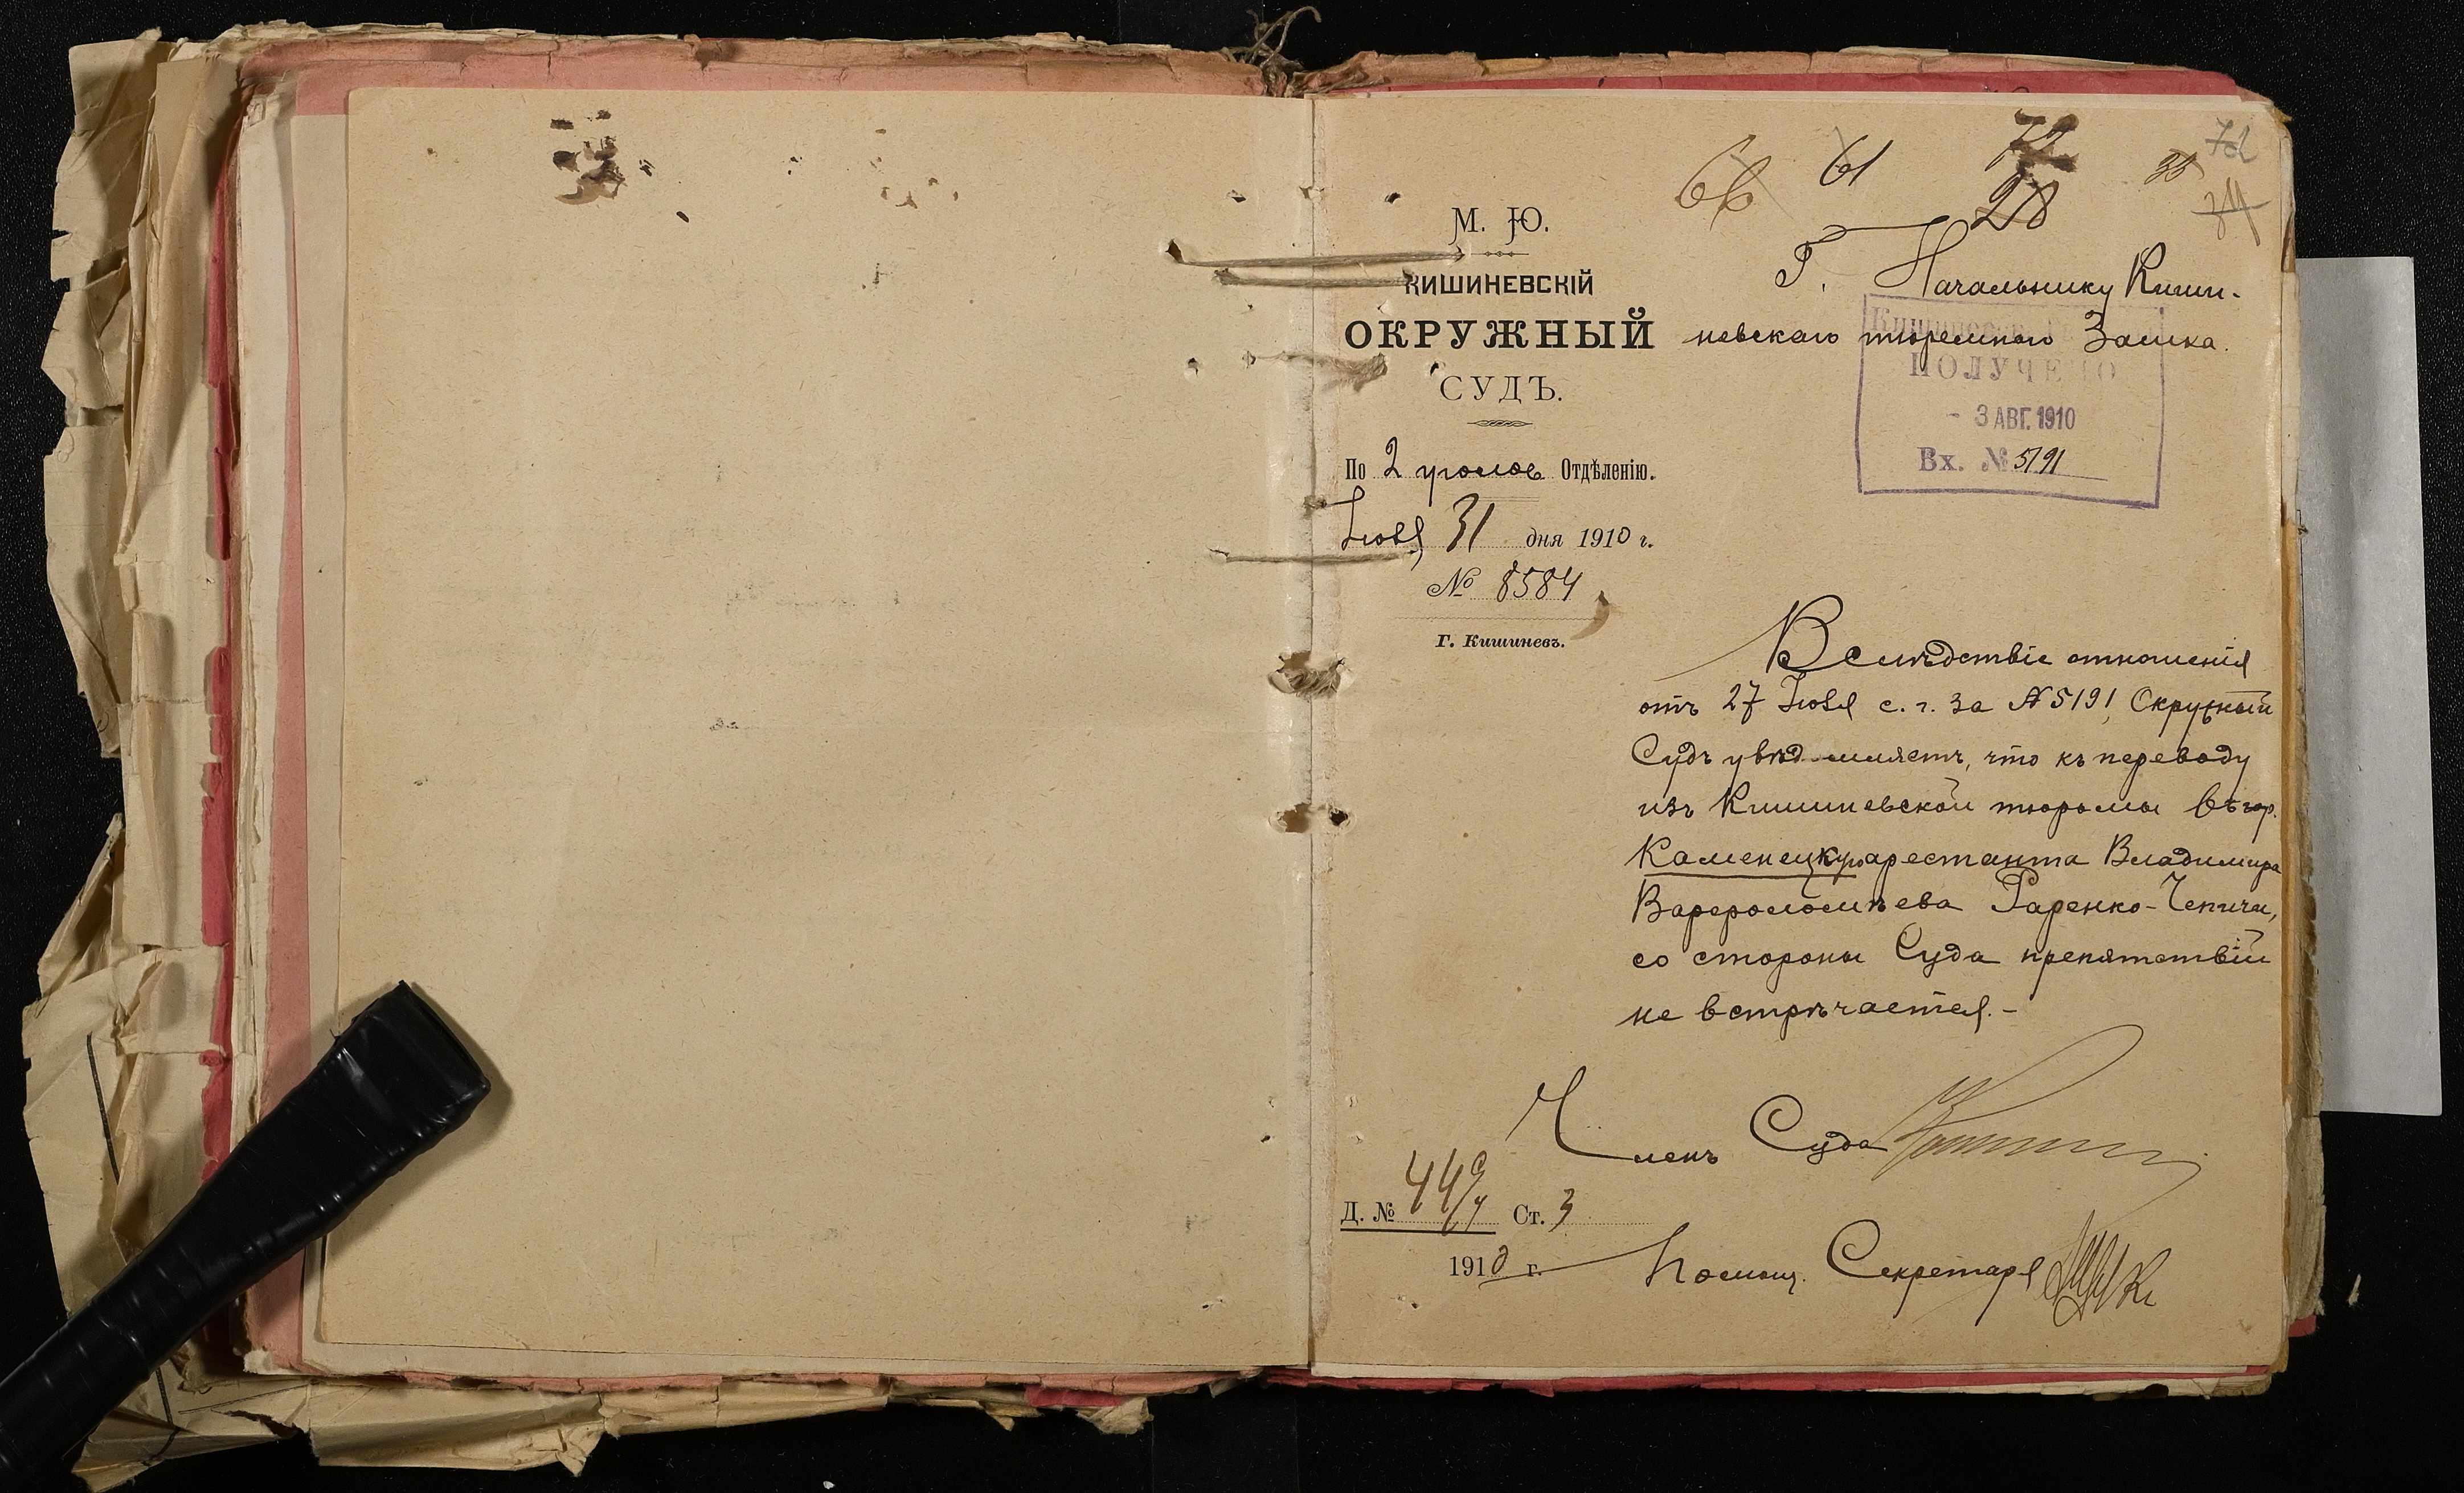 66 61 72 35 72
28 34
М. Ю.
КИШИНЕВСКІЙ
ОКРУЖНЫЙ
СУДЪ.
По 2 уголов Отдѣленію.
Іюля 31 дня 1910 г.
№ 8584
Г. Кишиневъ.
Г. Начальнику Киши-
невскаго тюремнаго Замка.
ПОЛУЧЕНО
- 3 АВГ. 1910
Вх. № 5191
Вслѣдствіе отношенія
отъ 27 Іюля с. г. за № 5191, Окружный
Судъ увѣдомляетъ, что къ переводу
изъ Кишиневской тюрьмы въ гор.
Каменецку арестанта Владимира
Варфоломѣева Гаренко-Чепичи,
со стороны Суда препятствій
не встрѣчается.-
Членъ Суда
Д. № 449/4 Ст. 3
1910 г.
Помощ. Секретаря